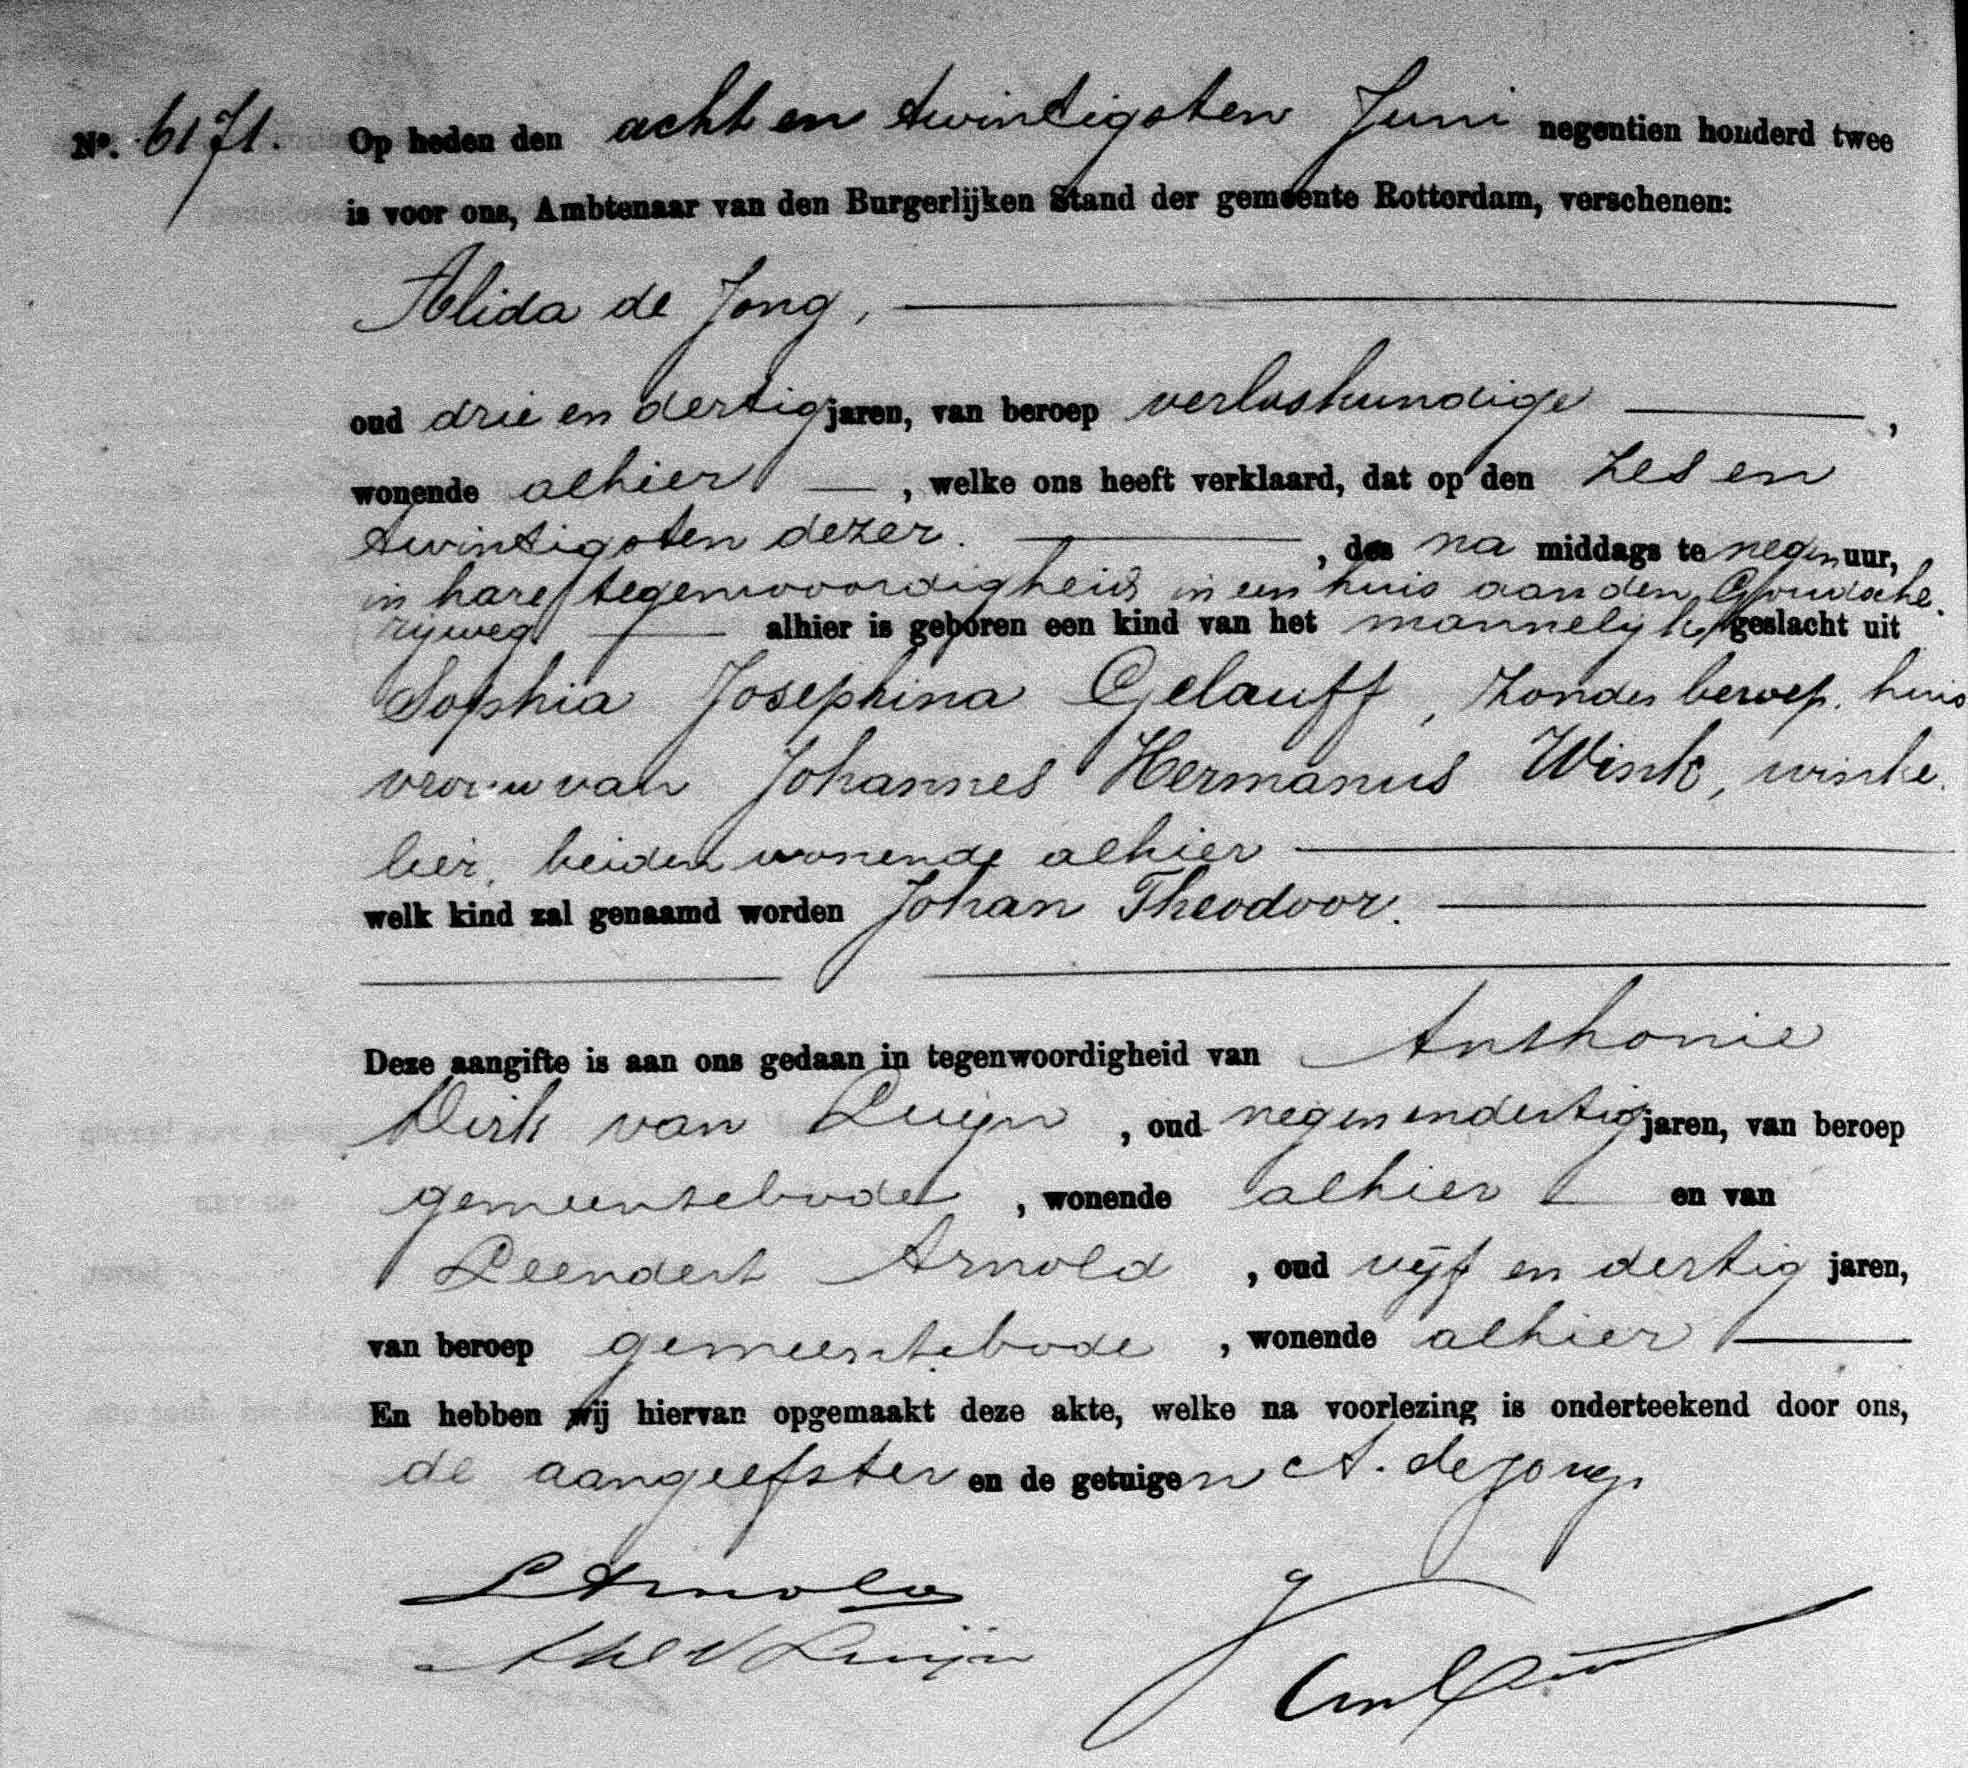 No. 6171. Op heden den acht en twintigsten Juni negentien honderd twee
is voor ons, Ambtenaar van den Burgerlijken Stand der gemeente Rotterdam, verschenen:
Alida de Jong,
oud drie en dertig jaren, van beroep verloskundige,
wonende alhier, welke ons heeft verklaard, dat op den zes en
twintigsten dezer., des na middags te negen uur,
in hare tegenwoordigheid in een huis aan den Goudsche
rijweg alhier is geboren een kind van het mannelijk geslacht uit
Sophia Josephina Gelauff, zonder beroep, huis
vrouw van Johannes Hermanus Wink, winke
lier, beiden wonende alhier
welk kind zal genaamd worden Johan Theodoor.
Deze aangifte is aan ons gedaan in tegenwoordigheid van Anthonie
Dirk van Luijn, oud negen en dertig jaren, van beroep
gemeentebode, wonende alhier en van
Leendert Arnold, oud vijf en dertig jaren,
van beroep gemeentebode, wonende alhier
En hebben wij hiervan opgemaakt deze akte, welke na voorlezing is onderteekend door ons,
de aangeefster en de getuigen A. de Jong.
L Arnold
Luijn